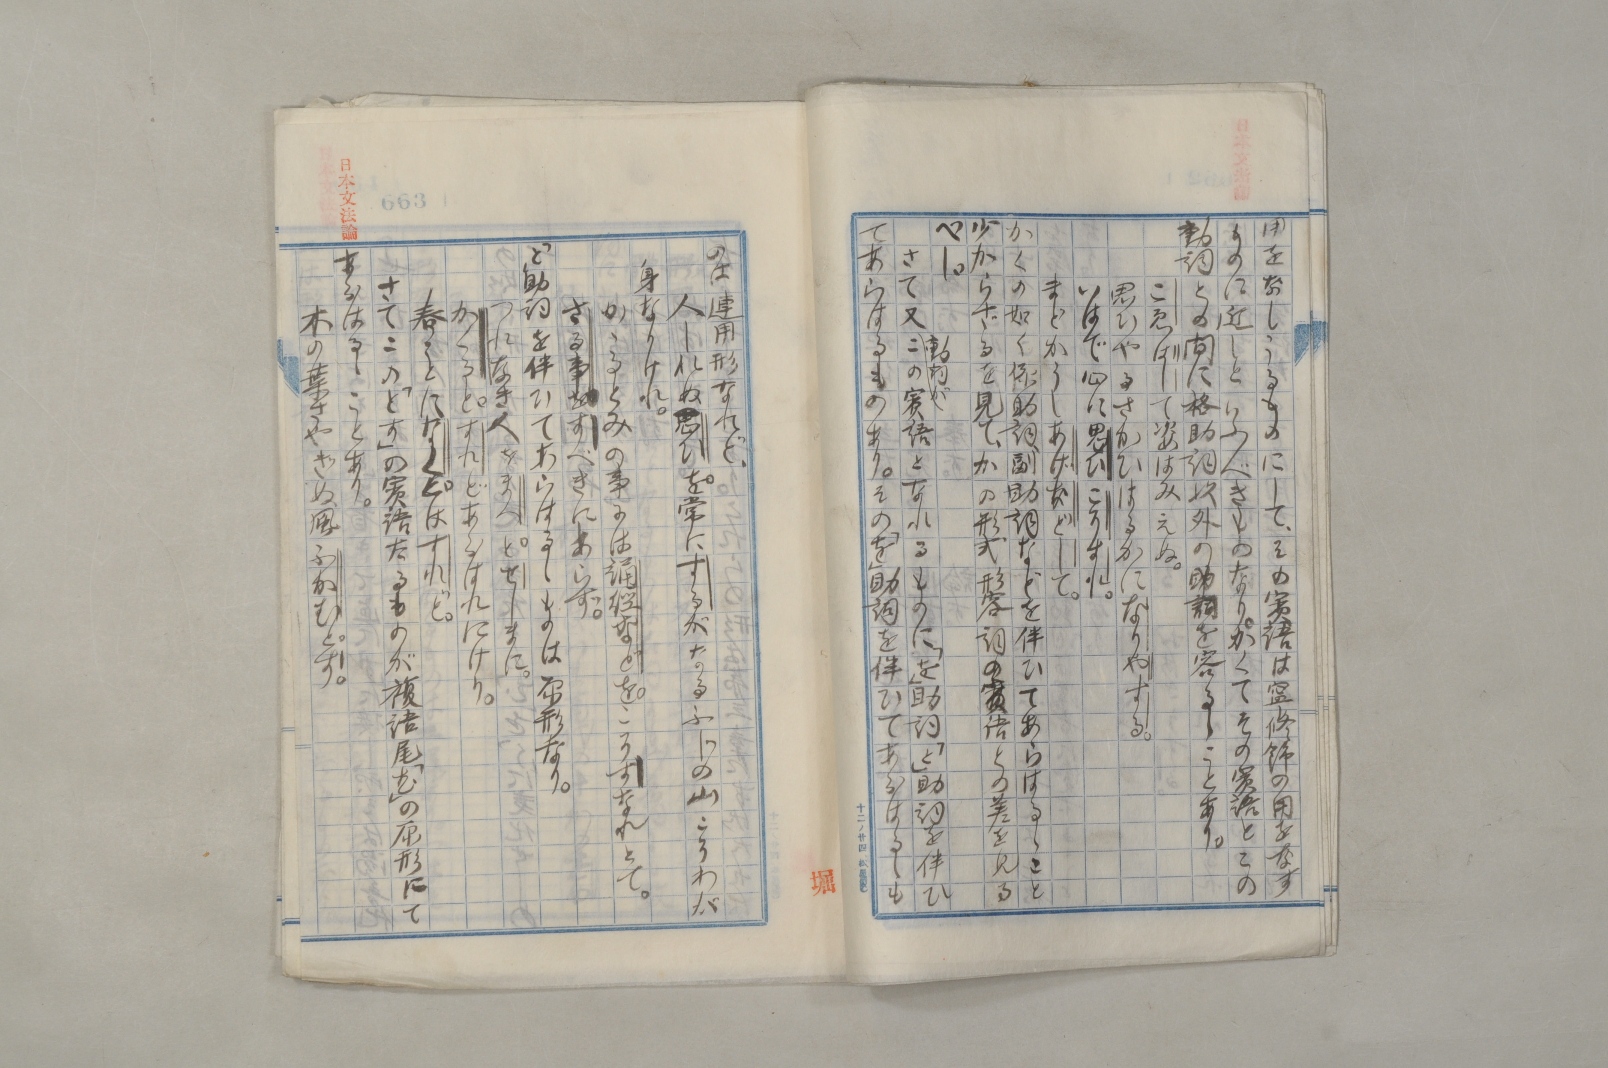 用をなしうるものにして、その賓語は寧修飾の用をなす
ものに近しといふべきものなり。かくてその賓語とこの
動詞との間に格助詞以外の助詞を容るゝことあり。
こゑばして姿はみえぬ。
思ひやるさかひはるかになりやする。
いはで心に思ひこそすれ。
まどかうしあけなどして。
かくの如く係助詞副助詞などを伴ひてあらはるゝこと
少からざるを見て、かの形式形容詞の賓語との差を見る
べし。
さて又この動詞が賓語となれるものに「を」助詞「と」助詞を伴ひ
てあらはるものあり。その「を」助詞を伴ひてあらはるゝも
のは連用形なれど、
人しれぬ思ひを常にするがなるふじの山こそわが
身なりけれ。
かゝるとみの事には誦経などをこそすなれとて。
さる事すべきにあらず。
「と」助詞を伴ひてあらはるゝものは原形なり。
つれなき人をまつとせしまに。
かへるとすれどあらはれにけり。
春ごとにながるとはすれど。
さてこの「とす」の賓語たるものが複語尾「む」の原形にて
あらはるゝことあり。
木の葉さやぎぬ風ふかむとす。
日本文法論
663
堀